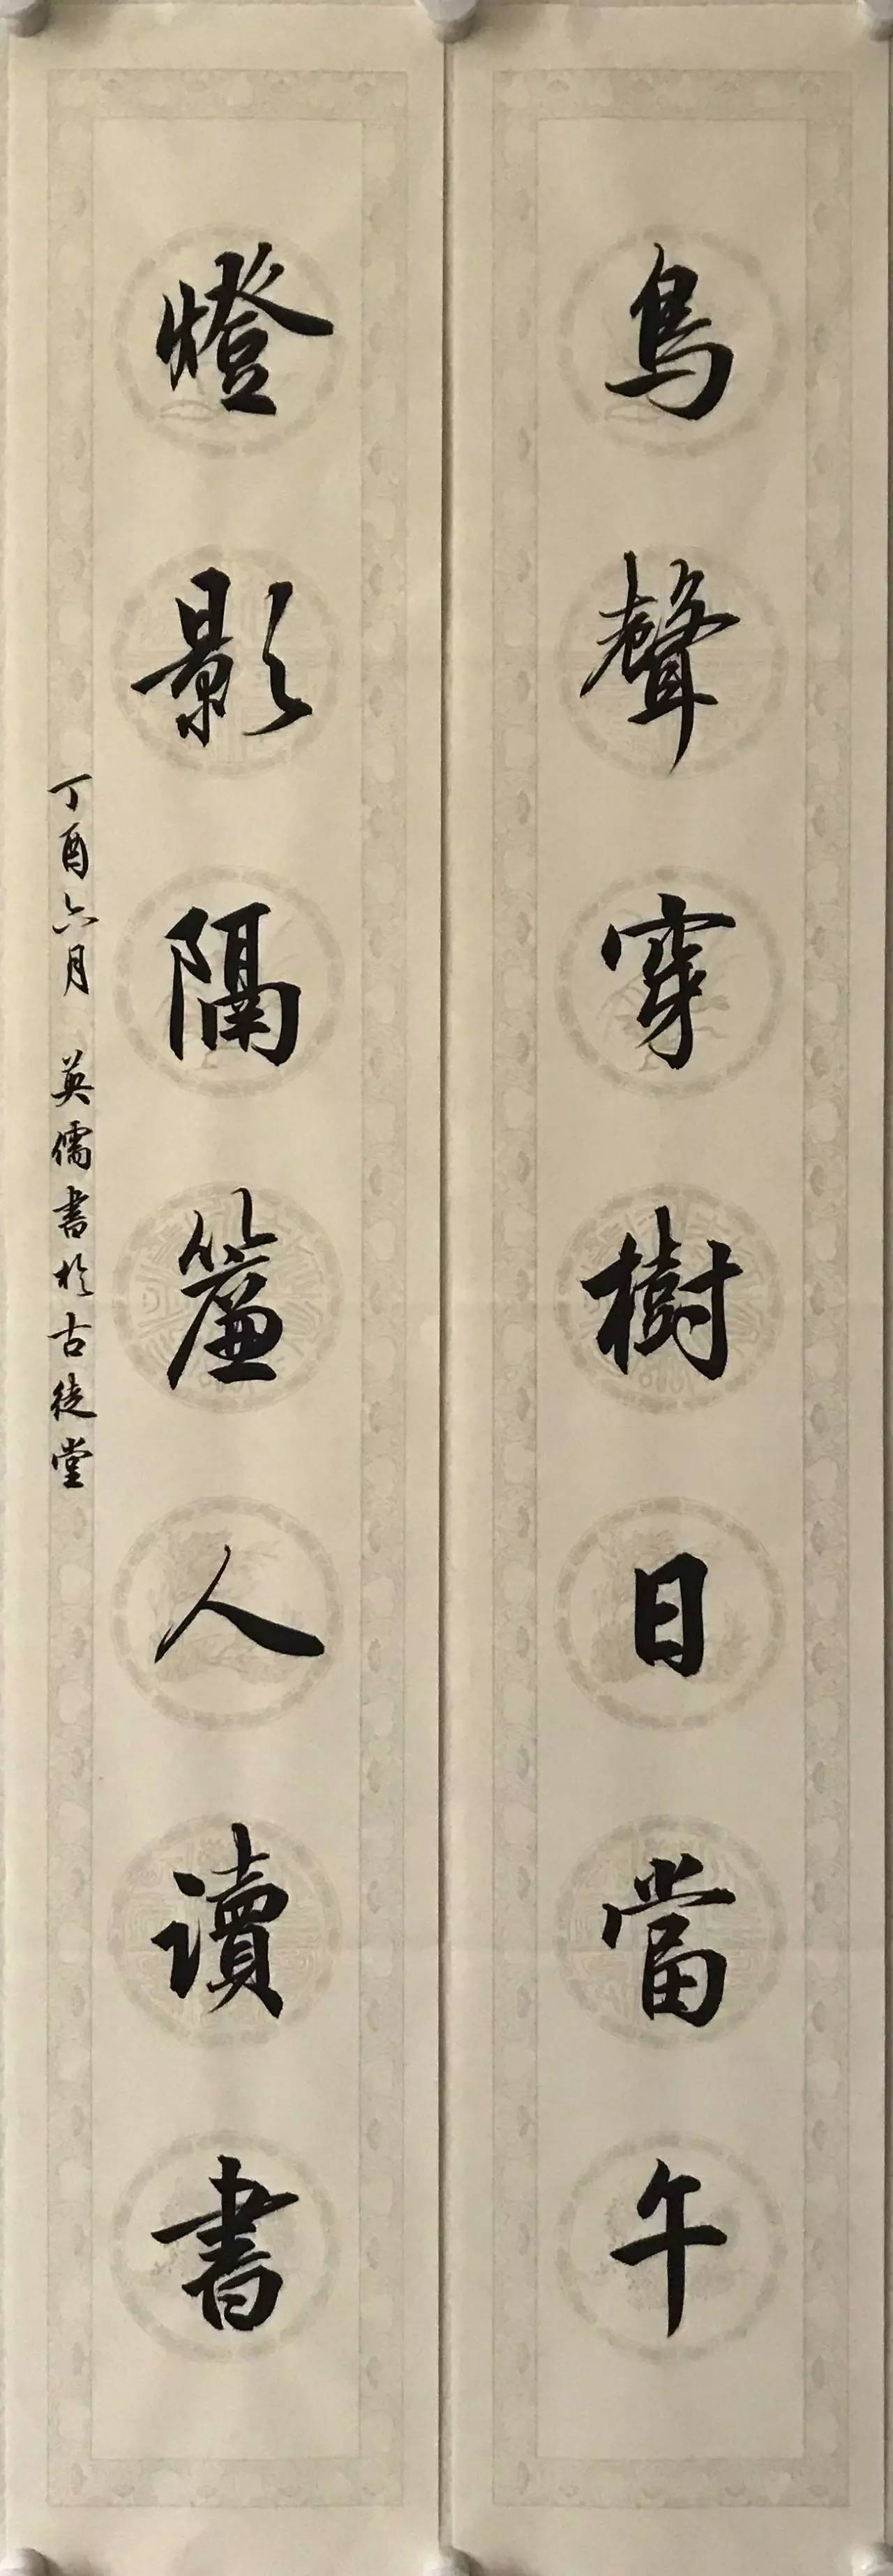 鳥聲穿樹日當午
燈影隔簾人讀書
丁酉六月 英儒書於古徒堂